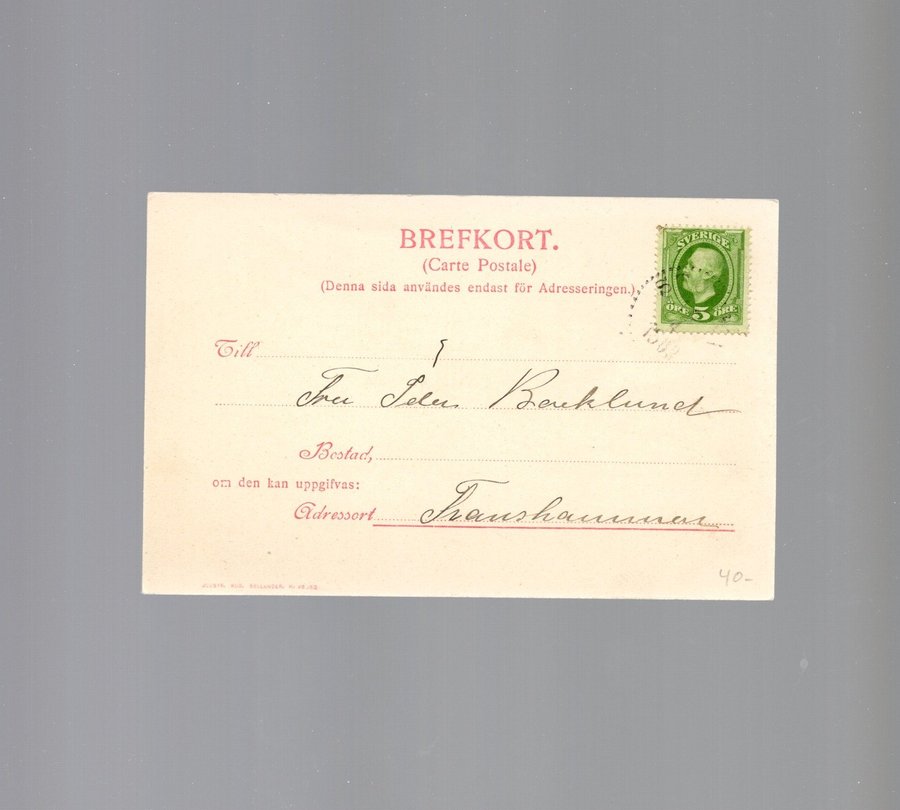 BREFKORT.
(Carte Postale)
(Denna sida användes endast för Adresseringen.)
SVERIGE
ÖRE 5 ÖRE
Till
Fru Peder Backlund
Bostad,
om den kan uppgifvas:
Adressort Franshammar
40-